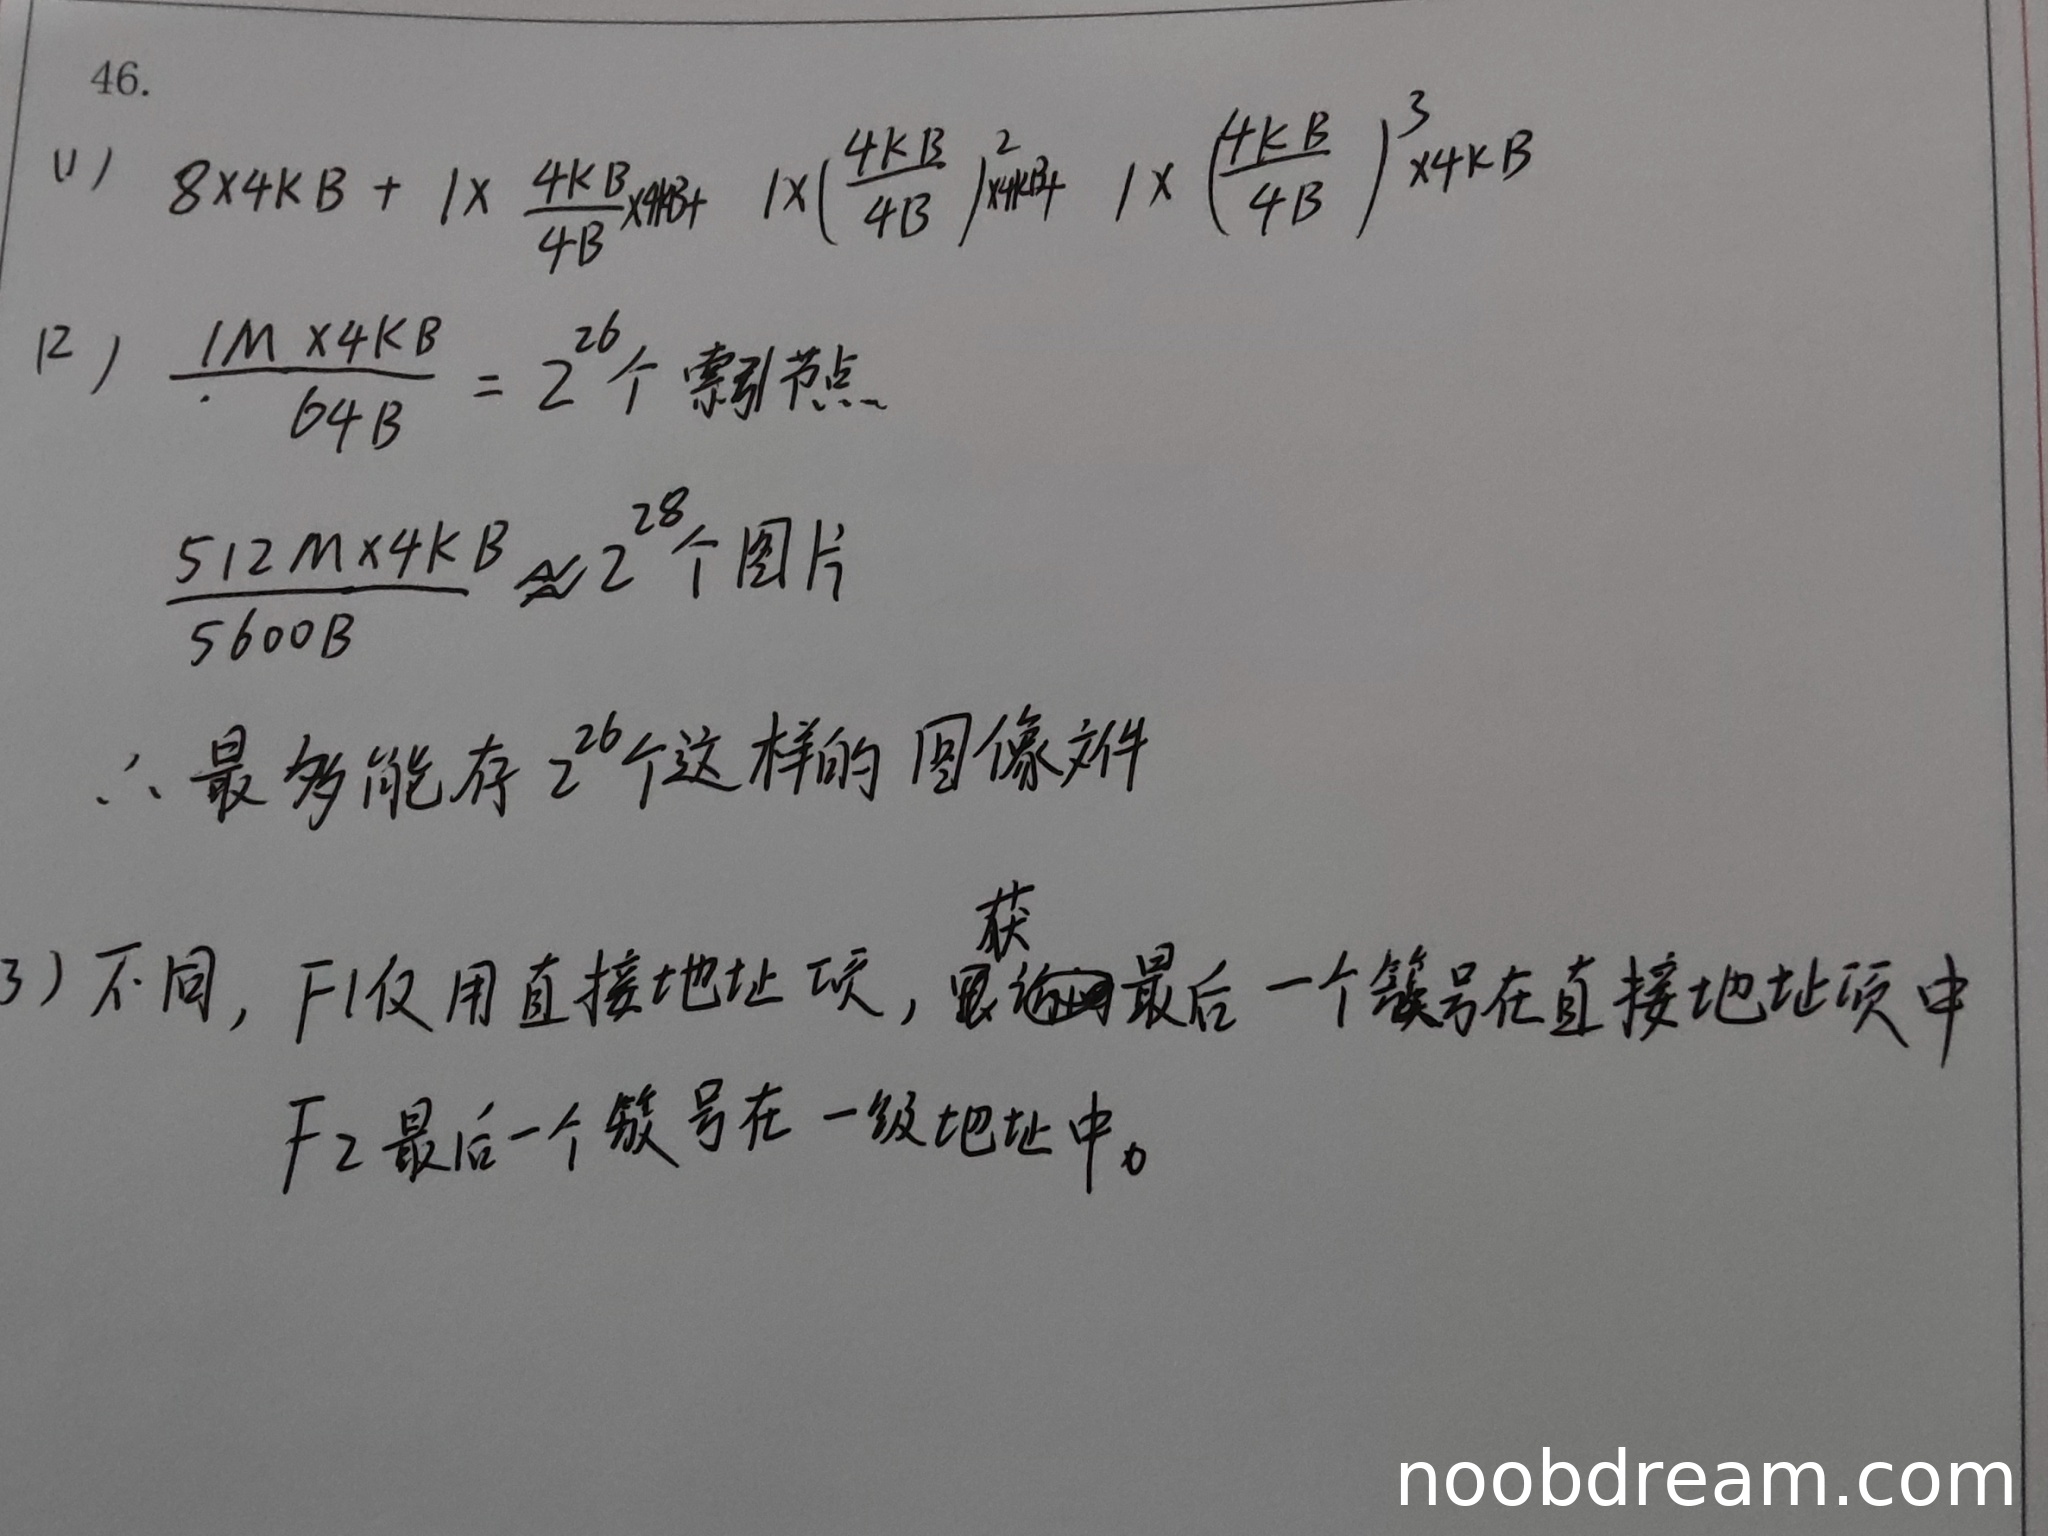 46.
(1) 8×4KB + 1× 4KB/4B ×4KB+ 1×(4KB/4B)²×4KB+ 1×(4KB/4B)³×4KB
(2) 1M×4KB/64B = 2²⁶个索引节点
512M×4KB/5600B ≈ 2²⁸个图片
∴ 最多能存2²⁶个这样的图像文件
3) 不同, F1仅用直接地址项, 获最后一个簇号在直接地址项中
F2最后一个簇号在一级地址中。
noobdream.com